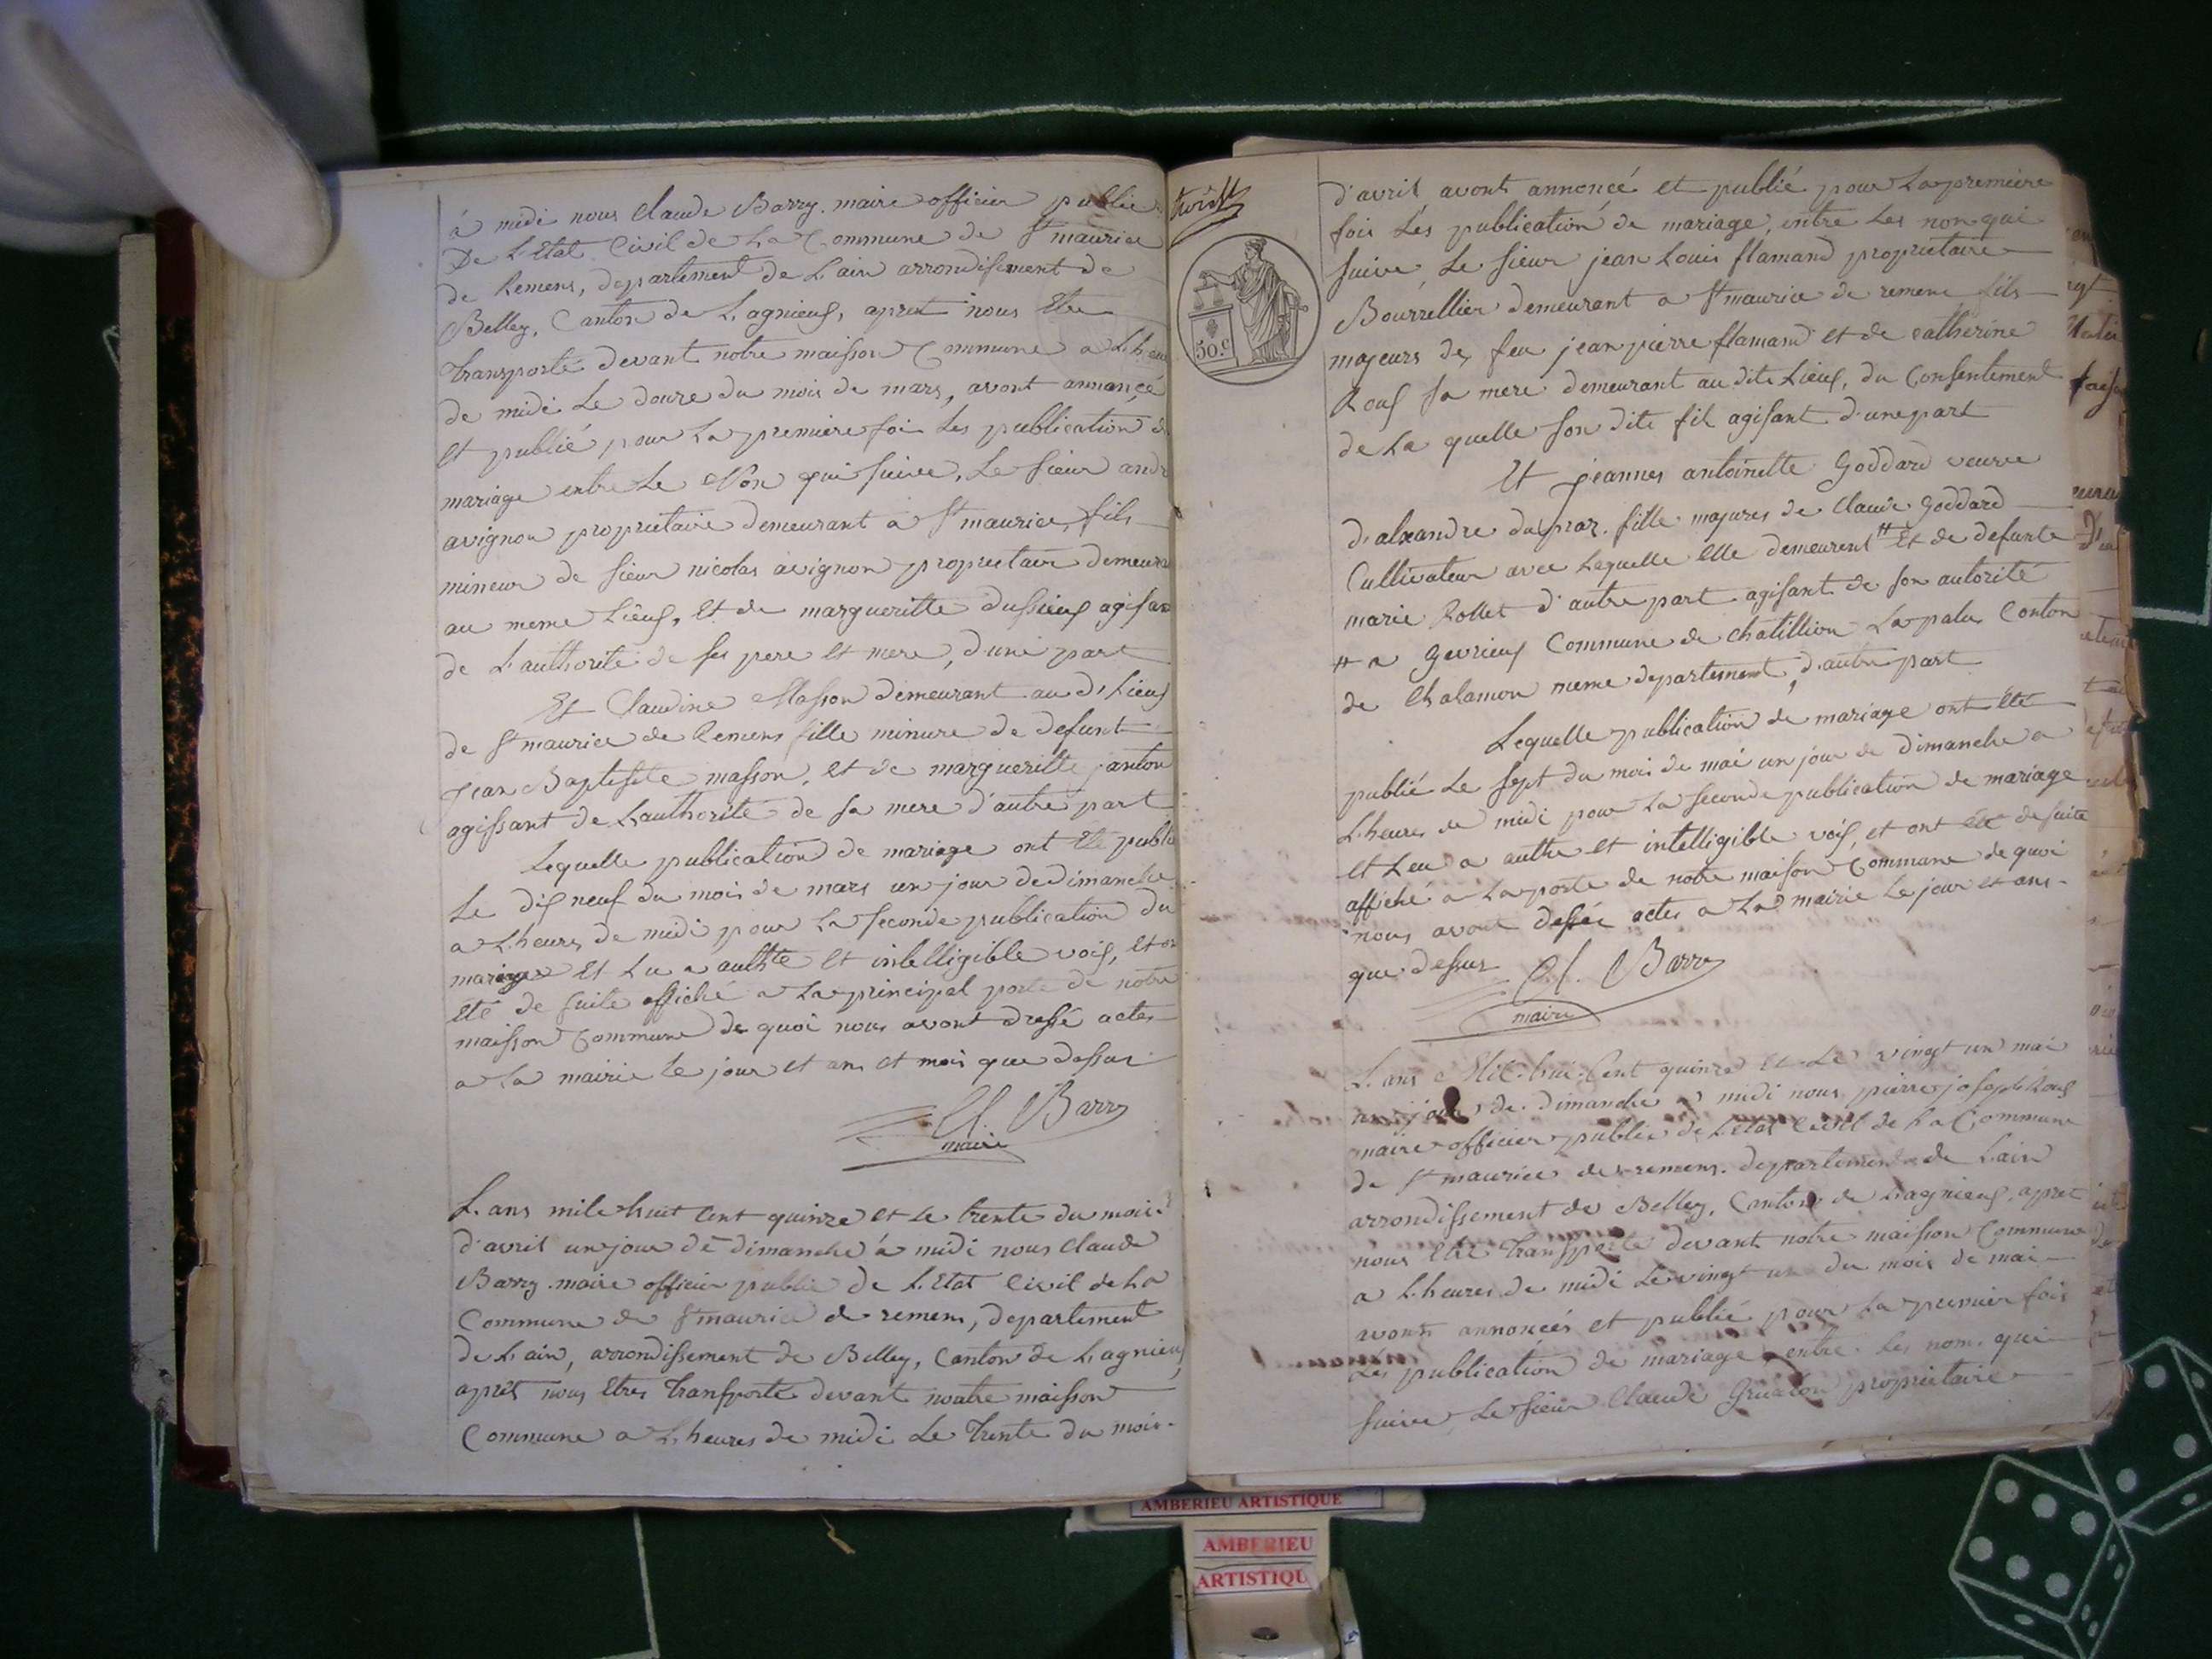 à midi nous Claude Barry maire officier public
De L'Etat Civil de La Commune de St maurice
de Remens, departement de Lain arrondisement de
Belley, Canton de Lagnieux, apret nous Etre
transporté devant notre maisson Commune a L'heu
de midi Le douze du mois de mars, avont annancé
Et publié pour La premiere foi Les publication d
mariage entre Le Non qui suive, Le sieur andr
avignon proprietaire demeurant a St maurice, fils
mineur de sieur nicolas avignon proprietair demeura
au meme Lieux, Et de margueritte dussieux agisan
de L'authorité de ses pere Et mere, d'une part
Et Claudine Masson demeurant au dt Lieux
de St maurice de Remens fille minure de defunt
Jean Baptisite masson, et de margueritte janton
agissant de Lauthorité de sa mere d'autre part
Lequelle publication de mariage ont Eté publi
Le dix neuf du mois de mars un jour de dimanche
a L'heures de midi pour La seconde publication du
mariage Et Lu a aulthe Et intelligible voix, Et on
Eté de suite affiché a La principal porte de notre
maisson Commune de quoi nous avont dressé actes
a La mairie le jour et ans et mois que dessus
Cl. Barry
maire
L. ans mile huit Cent quinze et Le trente du mois
d'avril un jour de dimanche à midi nous Claude
Barry maire officier public de L'Etat Civil de La
Commune de St maurice de remens, departement
de Lain, arrondissement de Belley, Canton de Lagnieux
apret nous Etres transporté devant notre maisson
Commune a L'heures de midi Le trente du mois
trois
50.c
d'avril, avont annoncé et publié pour La premiere
fois Les publication de mariage, entre Les non qui
suive Le sieur jean Louis flamand proprietaire
Bourrellier demeurant a St maurice de remens fils
majeurs de feu jean pierre flamand et de catherine
Roux sa mere demeurant au dite Lieux, du Consentement
de La quelle son dite fil agisant d'une part
Et jeannes antoinette Goddard veuve
d'alxandre fille majures de Claude Goddard
Cultivateur avec Laquelle elle demeurent # Et de defunte
marie Rollet d'autre part agisant de son autorité
# a gevrieux Commune de chatillion La palus Conton
de Chalamon meme departement, d'autre part
Lequelle publication de mariage ont Eté
publié Le sept du mois de mai un jour de dimanche a
L'heures de midi pour La seconde publication de mariage
et Leu a authe et intelligible voix, et ont été de suite
affiché a La porte de notre maison Commune de quoi
nous avont dessée actes a La mairie Le jour et ans
que dessus Cl. Barry
maire
L. ans Mil. hui. Cent quinze et Le vingt un mai
un jour de dimanche a midi nous pierre joseph Roux
maire officier public de L'etat Civil de La Commune
de St maurice de remens departement de Lain
arrondissement de Belley, Canton de Lagnieux, apret
nous etre transporté devant notre maisson Commune
a L'heures de midi Le vingt un du mois de mai
avont annoncés et publié pour La premier fois
Les publication de mariage entre Les nom qui
suive, Le sieur Claude proprietaire
AMBERIEU ARTISTIQUE
AMBERIEU
ARTISTIQU